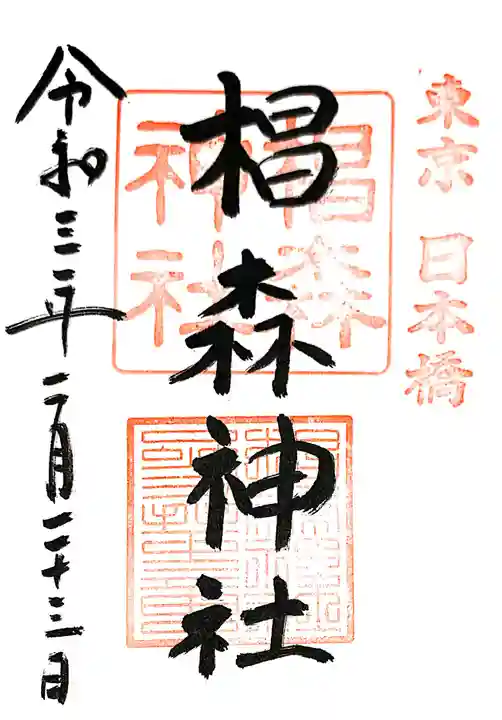 東京 日本橋
椙森神社
椙森神社
令和三年二月二十三日